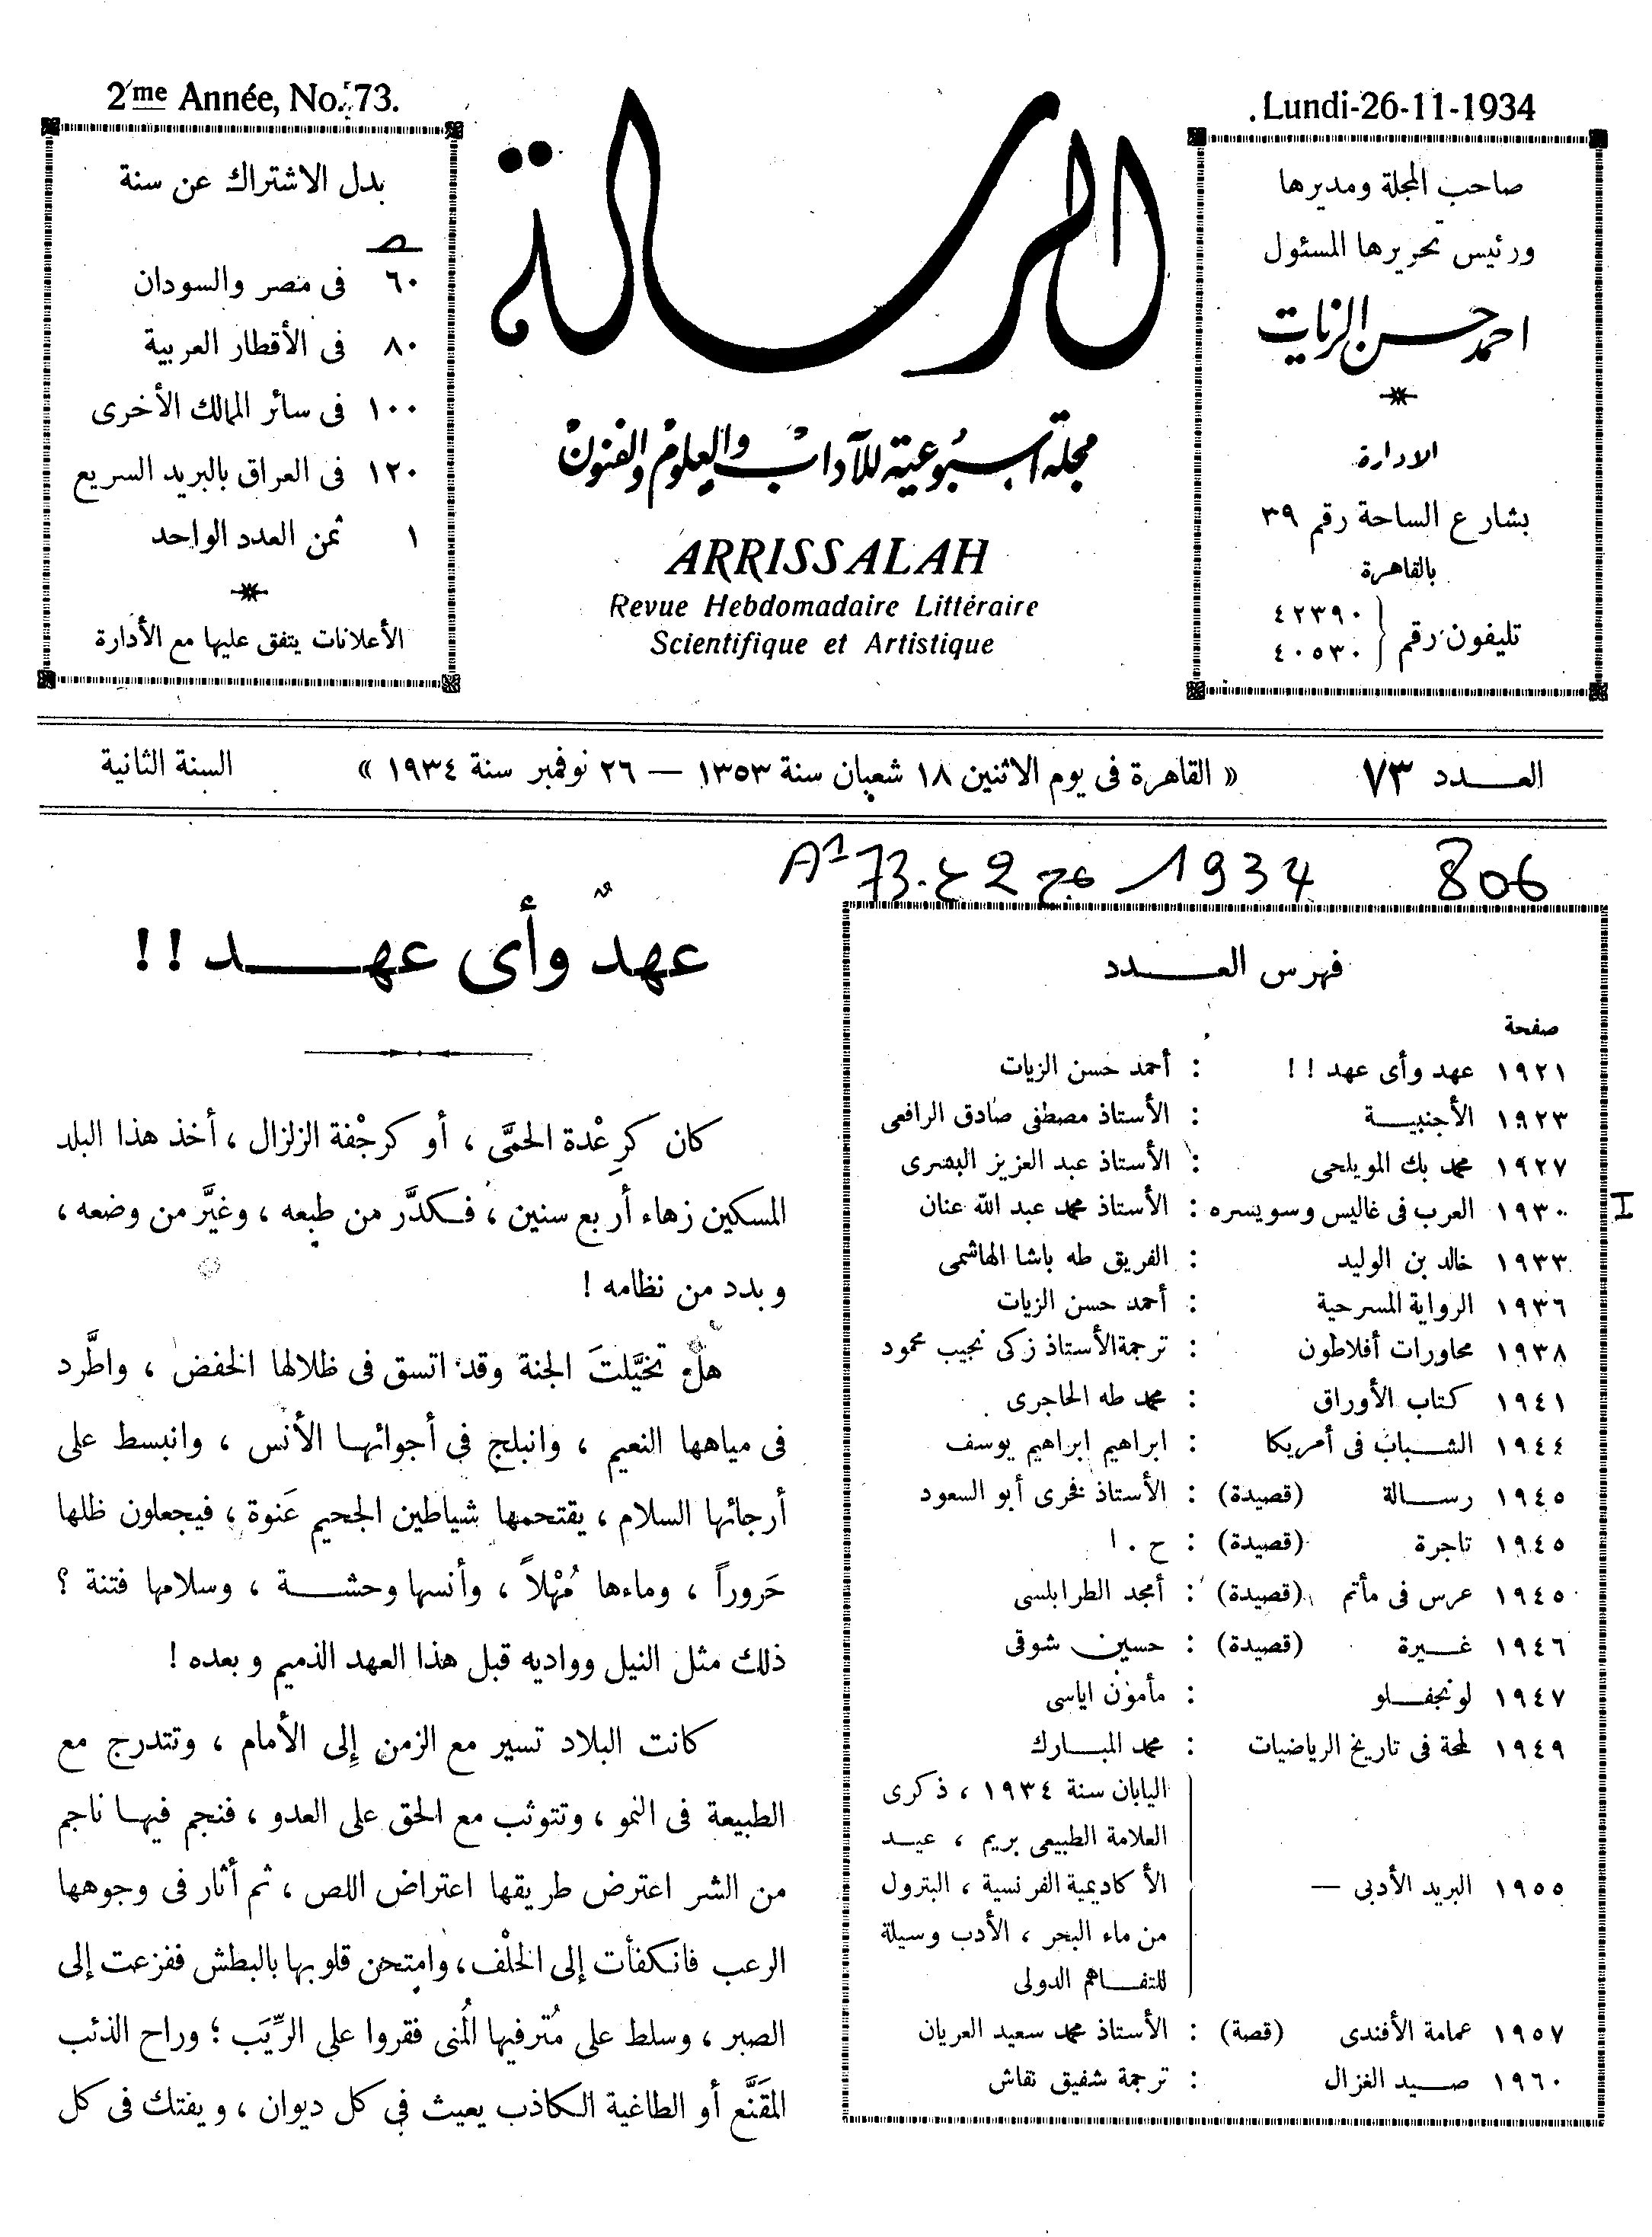 2me Année, No. 73.
Lundi-26-11-1934
صاحب المجلة ومديرها
ورئيس تحريرها المسئول
احمد حسن الزيات
الادارة
بشارع الساحة رقم ٣٩
بالقاهرة
تليفون رقم
٤٢٣٩٠
٤٠٥٣٠
الرسالة
مجلة أسبوعية للآداب والعلوم والفنون
ARRISSALAH
Revue Hebdomadaire Littéraire
Scientifique et Artistique
بدل الاشتراك عن سنة
٦٠ فى مصر والسودان
٨٠ فى الأقطار العربية
١٠٠ فى سائر الممالك الأخرى
١٢٠ فى العراق بالبريد السريع
١ ثمن العدد الواحد
الأعلانات يتفق عليها مع الأدارة
العـــدد ٧٣
« القاهرة فى يوم الاثنين ١٨ شعبان سنة ١٣٥٣ — ٢٦ نوفمبر سنة ١٩٣٤ »
السنة الثانية
806
1934
2
73
فهرس العـــدد
صفحة
١٩٢١ عهد وأى عهد ! ! : أحمد حسن الزيات
١٩٢٣ الأجنبيـــة : الأستاذ مصطفى صادق الرافعى
١٩٢٧ محمد بك المويلحى : الأستاذ عبد العزيز البشرى
١٩٣٠ العرب فى غاليس وسويسره : الأستاذ محمد عبد الله عنان
١٩٣٣ خالد بن الوليد : الفريق طه باشا الهاشمى
١٩٣٦ الرواية المسرحية : أحمد حسن الزيات
١٩٣٨ محاورات أفلاطون : ترجمة الأستاذ زكى نجيب محمود
١٩٤١ كتاب الأوراق : محمد طه الحاجرى
١٩٤٤ الشبـــاب فى أمريكا : ابراهيم ابراهيم يوسف
١٩٤٥ رســـالة (قصيدة) : الأستاذ فخرى أبو السعود
١٩٤٥ تاجرة (قصيدة) : ح . ا
١٩٤٥ عرس فى مأتم (قصيدة) : أمجد الطرابلسى
١٩٤٦ غـــيرة (قصيدة) : حسين شوقى
١٩٤٧ لونجفـــلو : مأمون اياسى
١٩٤٩ لمحة فى تاريخ الرياضيات : محمد المبـــارك
١٩٥٥ البريد الأدبى —
اليابان سنة ١٩٣٤ ، ذكرى
العلامة الطبيعى بريم ، عيـــد
الأكاديمية الفرنسية ، البترول
من ماء البحر ، الأدب وسيلة
للتفـــاهم الدولى
١٩٥٧ عمامة الأفندى (قصة) : الأستاذ محمد سعيد العريان
١٩٦٠ صـــيد الغزال : ترجمة شفيق نقاش
عهدٌ وأى عهـــد !!
كان كرِعْدة الحمَّى ، أو كرجْفة الزلزال ، أخذ هذا البلد
المسكين زهاء أربع سنين ، فـكدَّر من طبعه ، وغيَّر من وضعه ،
وبدد من نظامه !
هل تخيَّلتَ الجنة وقد اتسق فى ظلالها الخفض ، واطَّرد
فى مياهها النعيم ، وانبلج فى أجوائهـا الأنس ، وانبسط على
أرجائها السلام ، يقتحمها شياطين الجحيم عَنوة ، فيجعلون ظلها
حَروراً ، وماءها مُهْلاً ، وأنسها وحشـــة ، وسلامها فتنة ؟
ذلك مثل النيل وواديه قبل هذا العهد الذميم وبعده !
كانت البلاد تسير مع الزمن إلى الأمام ، وتتدرج مع
الطبيعة فى النمو ، وتتوثب مع الحق على العدو ، فنجم فيهـا ناجم
من الشر اعترض طريقها اعتراض اللص ، ثم أثار فى وجوهها
الرعب فانكفأت إلى الخلْف ، وامتحن قلوبها بالبطش ففزعت إلى
الصبر ، وسلط على مُترفيها المُنى فقروا على الرِّيَب ؛ وراح الذئب
المقَنَّع أو الطاغية الكاذب يعيث فى كل ديوان ، ويفتك فى كل